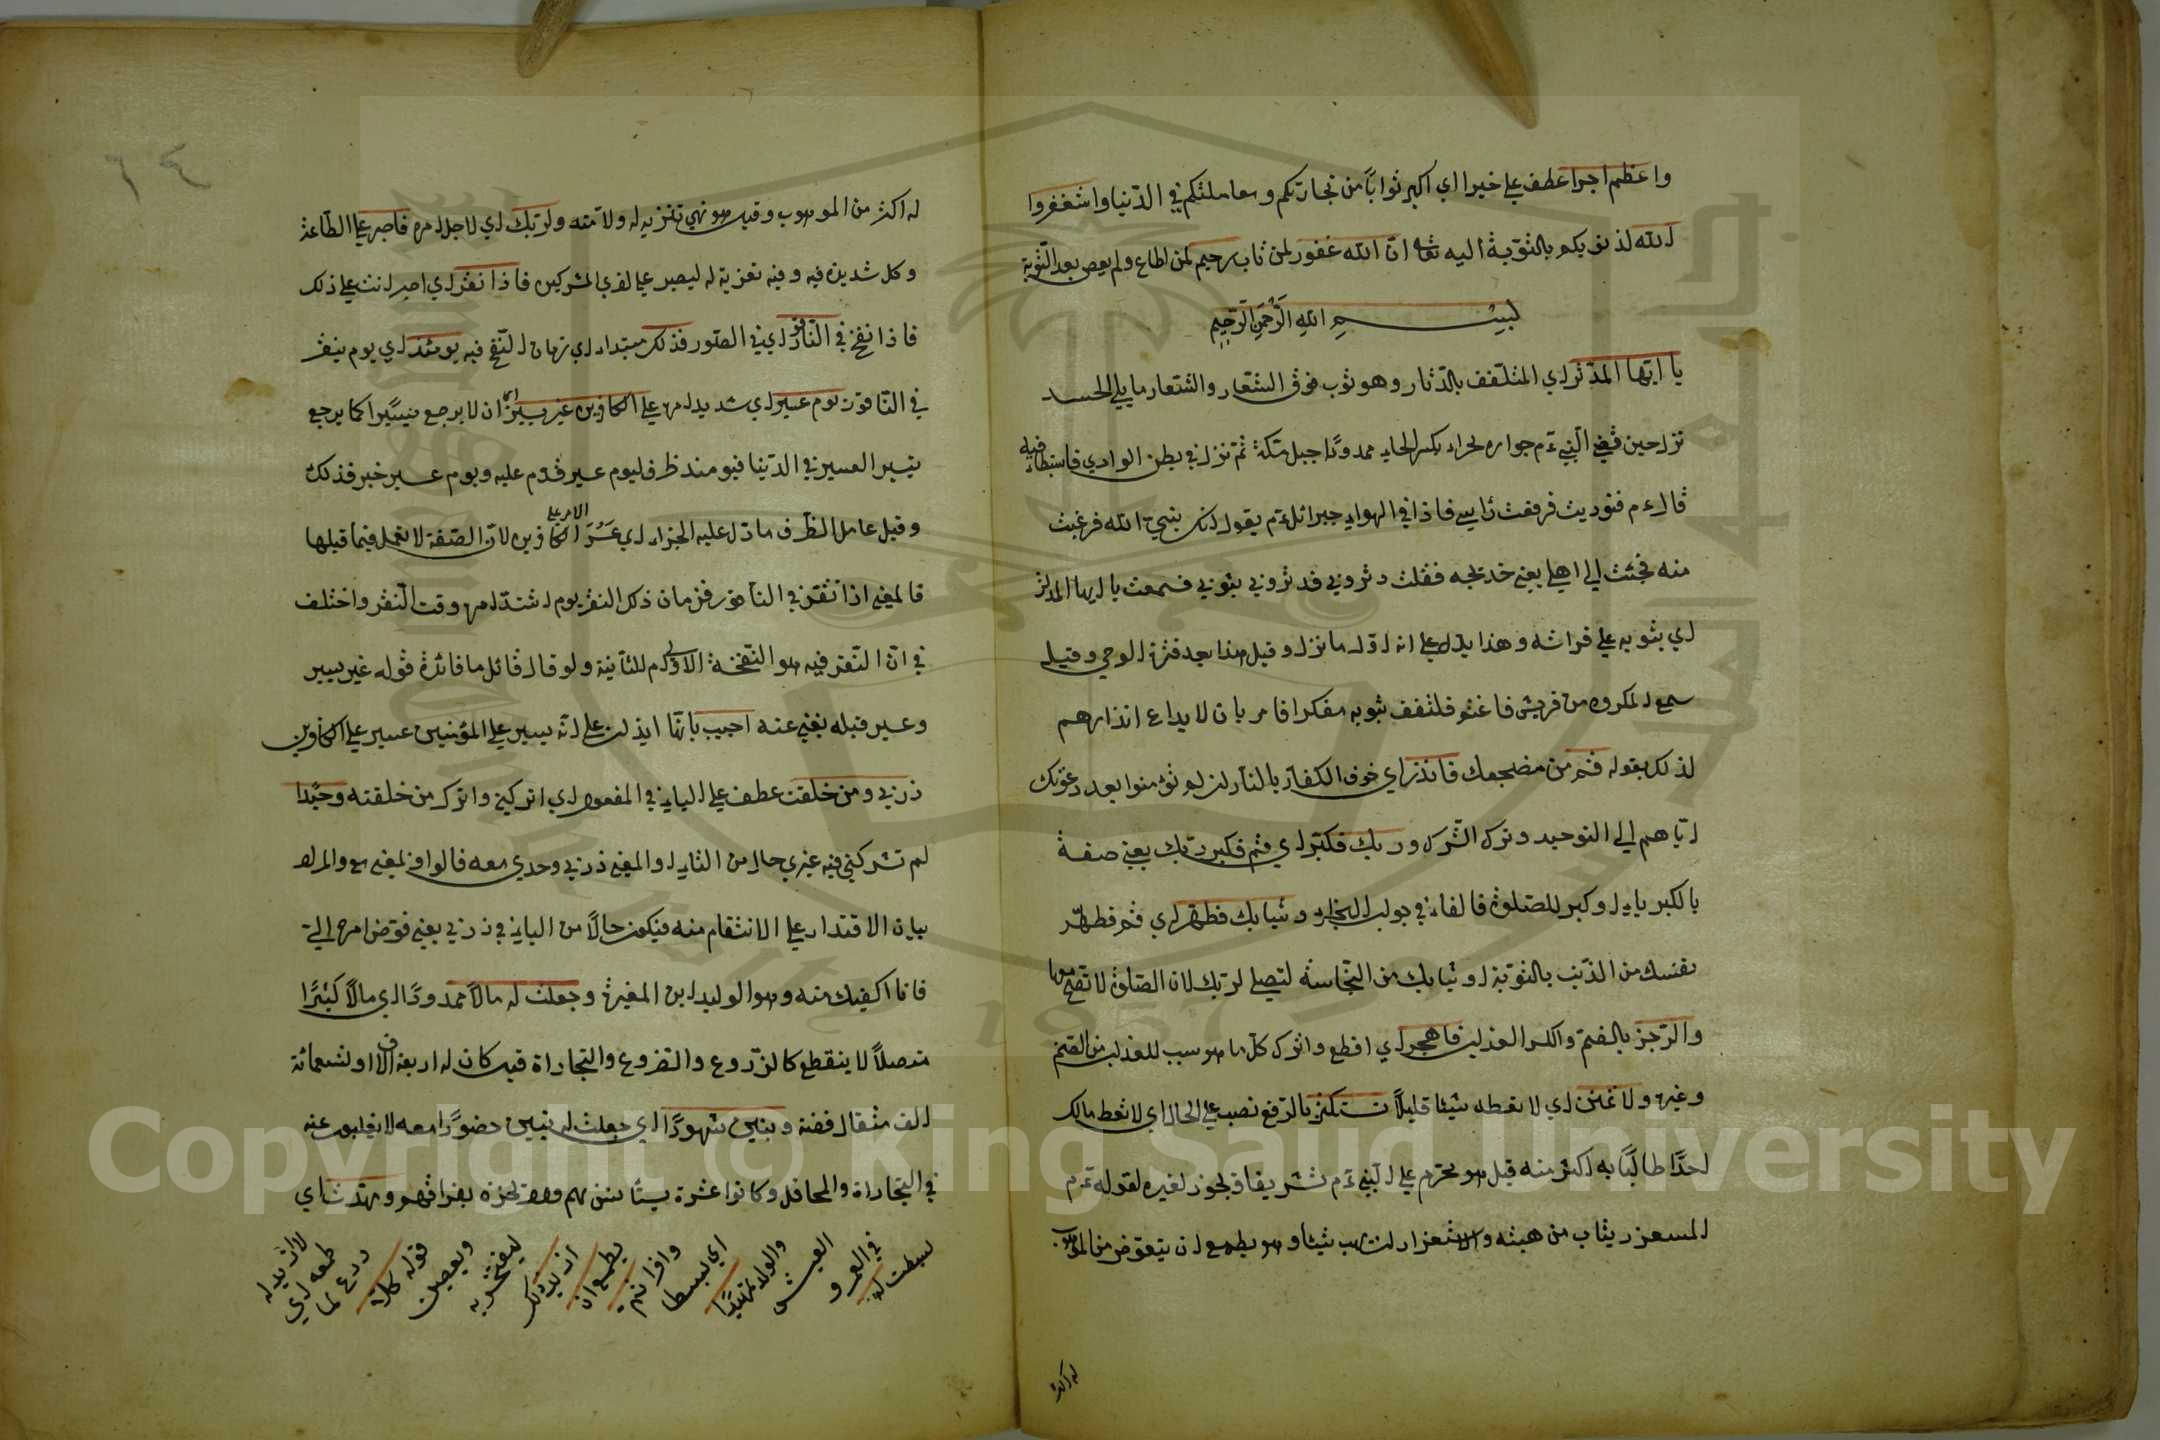 واعظم اجرا عطف على خيرا اي اكبر ثوابا من تجارتكم ومعاملتكم في الدنيا واستغفروا
الله لذنوبكم بالتوبة اليه تعالى ان الله غفور لمن تاب رحيم لمن اطاع ولم يعص بعد التوبة
بسم الله الرحمن الرحيم
يا ايها المدثر اي المتلفف بالدثار وهو ثوب فوق الشعار والشعار ما يلي الجسد
نزل حين قضى النبي عم جواره بحراء بكسر الحاء ممدودا جبل مكة ثم نزل في بطن الوادي فاستبطاء
قال عم فنوديت فرفعت راسي فاذا في الهواء جبرائل عم يقول انك نبي الله فرعبت
منه فجئت الى اهلي يعني خديجه فقلت دثروني فدثروني بثوبي فسمعت يا ايها المدثر
اي بثوبه على فراشه وهذا يدل على انه اول ما نزل وقيل هذا بعد فترة الوحي وقيل
سمع المكروه من قريش فاغتم فلتفف ثوبه مفكرا فامر بان لا يداع انذارهم
لذلك بقوله قم من مضجعك فانذر اي خوف الكفار بالنار ان لم يؤمنوا بعد دعوتك
اياهم الى التوحيد وترك الشرك وربك فكبر اي قم فكبر ربك يعني صفة
بالكبرياء او كبر للصلوة فالفاء في جواب الجزاء وثيابك فطهر اي قم فطهر
نفسك من الذنب بالتوبة او ثيابك من النجاسة لتصلي لربك لان الصلوة لا تصح معها
والرجز بالضم والكسر العذاب فاهجر اي اقطع واترك كل ما هو سبب للعذاب من الصنم
وغيره ولا تمنن اي لا تعطه شيئا قليلا تستكثر بالرفع نصب على الحال اي لا تعط مالك
احدا طالبا به اكثر منه قيل هو محرم على النبي عم تشريفا ويجوز لغيره لقوله عم
المستغزر يثاب من هبته والاستغزار ان يهب شيئا وهو يطمع ان يتعوض من الموهوب
له اكثر
٦٤
له اكثر من الموهوب وقيل هو نهي تنزيه له ولامته ولربك اي لاجل امره فاصبر على الطاعة
وكل شديدة فيه وفيه تعزية له ليصبر على اذى المشركين فاذا نقر اي اصبر انت على ذلك
فاذا نفخ في الناقور اي في الصور فذلك مبتداء اي زمان النفخ فيه يومئذ اي يوم ينقر
في الناقور يوم عسير اي شديد امره على الكافرين غير يسير اي ان لا يرجع يسيرا كما يرجع
تيسير العسير في الدنيا فيومئذ ظرف ليوم عسير قدم عليه ويوم عسير خبر فذلك
وقيل عامل الظرف ما دل عليه الجزاء اي عسر الامر على الكافرين لان الصفة لا تعمل فيما قبلها
فالمعنى اذا نقر في الناقور فزمان ذلك النقر يوم اشتد امره وقت النقر واختلف
في ان النقر فيه هو النفخة الاولى ام الثانية ولو قال قائل ما فائدة قوله غير يسير
وعسير قبله يغني عنه اجيب بانها ايذان على انه يسير على المؤمنين عسير على الكافرين
ذرني ومن خلقت عطف على الياء في المفعول اي اتركني واترك من خلقته وحيدا
لم تشركني فيه غيري حال من التاء او المعنى ذرني وحدي معه فالواو بمعنى مع والمراد
بيان الاقتدار على الانتقام منه فيكون حالا من الياء في ذرني يعني فوض امره الي
فانا اكفيك منه وهو الوليد ابن المغيرة وجعلت له مالا ممدودا اي مالا كثيرا
متصلا لا ينقطع كالزروع والضروع والتجاراة قيل كان له اربعة الاف او تسعمائة
الف مثقال فضة وبنين شهودا اي جعلت له بنين حضورا معه لا يغايبون عنه
في التجاراة والمحافل وكانوا عشرة يستأنس بهم ولا تحزنه بفراقهم ومهدت اي
بسطت له
في العمر و
العيش
والولد تمهيدا
اي بسطا
وافرا ثم
يطمع ان
ان ازيد ذلك
ليفتخر به
ويعصين
قوله كلا
ردع لما
طمعه اي
لا ازيد له